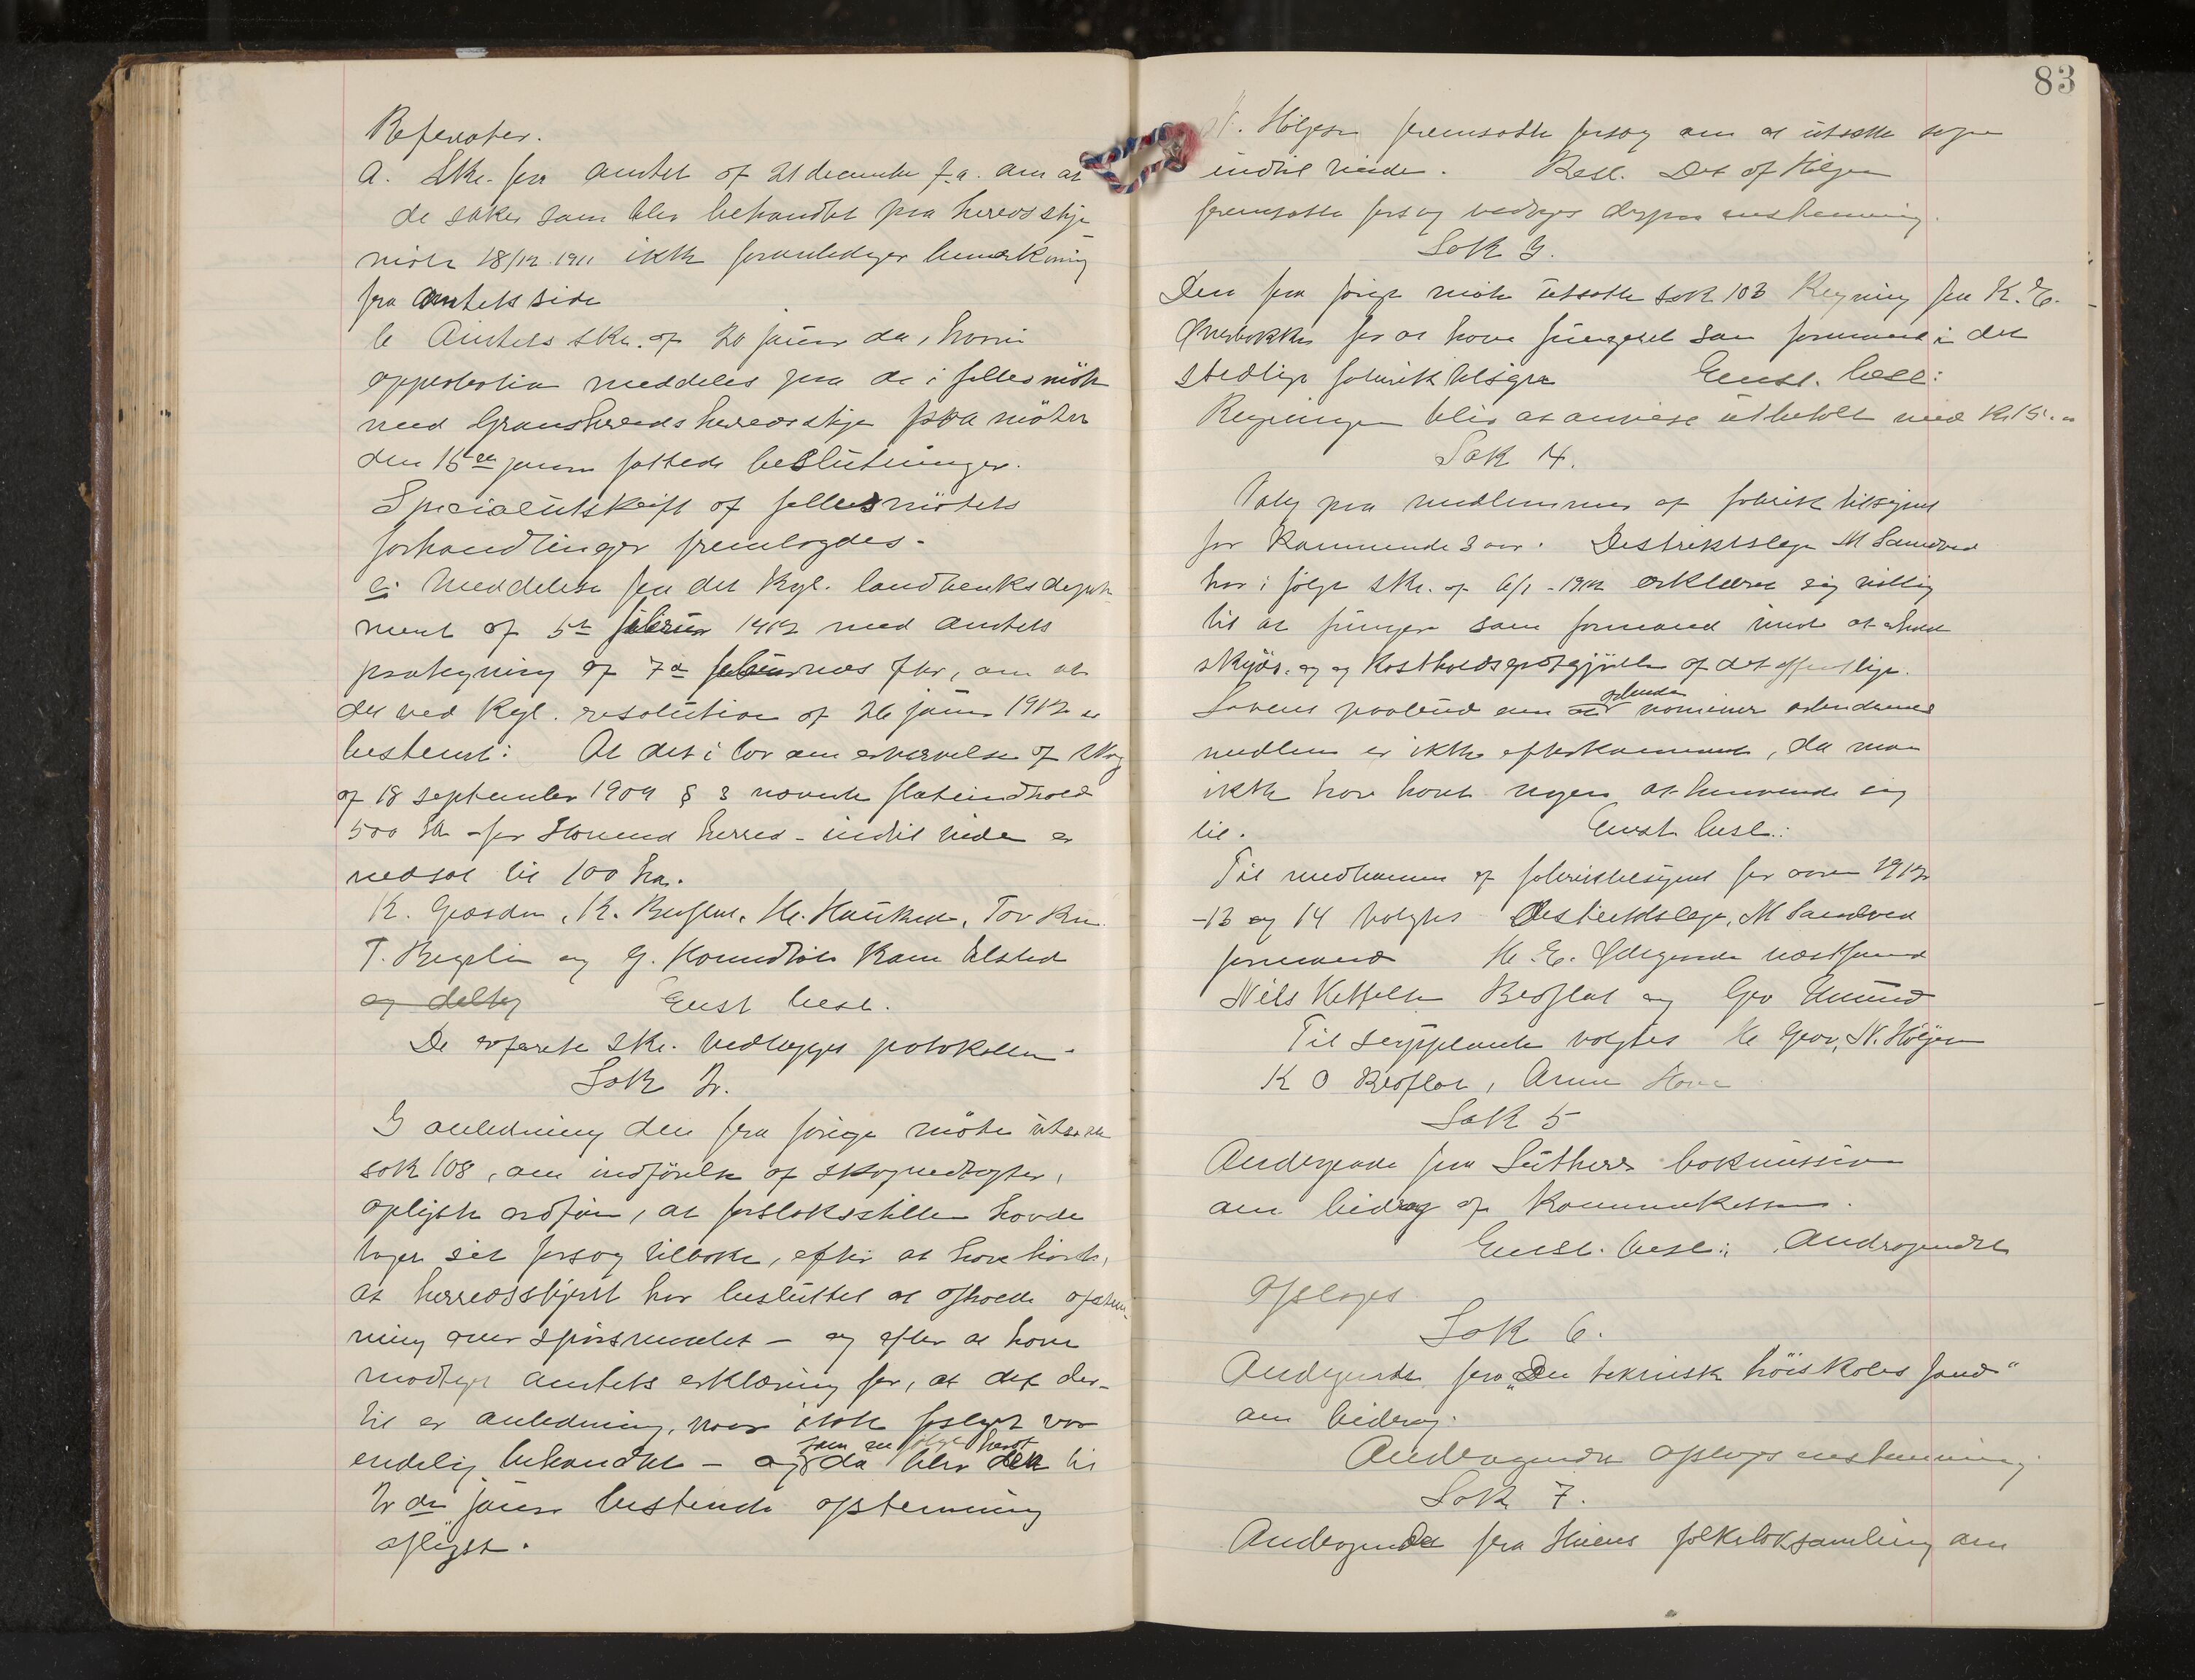 Referater.
a. Skr. fra amtet af 21 december f.a. om at
de saker som blev behandlet paa herredsstyre
møte 18/12 1911 ikke foranlediger bemerkning
fra amtets side
b Amtets skr. af 20 januar da, hvori
approbation meddeles paa de i fellesmöte
med Gransherreds herredsstyre paa möte
den 15de januar fattede beslutninger.
Specialutskrift af fellesmötets
forhandlinger fremlagdes.
c. Meddelelse fra det kgl. landbruksdeparte
ment af 5te februar 1912 med amtets
paategning af 7de februar, om at
det ved kgl. resolution af 26 januar 1912 er
bestemt: At det i lov om erhvervelse af skog
af 18 september 1909 § 3 nævnte flateindhold
500 ha for herred - indtil videre er
nedsat til 100 ha.
K. , K. Besflat, H. , Tov
T. og G. Kom tilsted
og deltog Enst besl.
De refererte skr. vedlegges protokollen.
Sak 2.
I anledning den fra forrige möte utsatte
sak 108, om indförelse af skogvedtegter,
oplyste ordfører, at forslagsstillere havde
taget sit forslag tilbake, efter at have hört,
at herredsstyret har besluttet at afholde afstem-
ning over spörsmaalet - og efter at have
mottaget amtets erklæring for, at det der-
til er anledning, naar ikke forslaget var
endelig behandlet - og da blev den til
som en følge herav
2den januar bestemte afstemning
aflyst.
83
N. Höljesen fremsatte forslag om at utsætte sagen
indtil videre. Besl. Det af Höljesen
fremsatte forslag vedtages enstemmig.
Sak 3.
Den fra forrige möte utsatte sak 103 Regning fra K. E.
for at have fungeret som formand i det
stedlige fabriktilsyn Enst. besl:
Regningen blir at anvise utbetalt med kr 15.
Sak 4.
Valg paa medlemmer af fabriktilsynet
for kommende 3 aar. Distriktslæge M Sandved
har i følge skr. af 6/1 - 1912 erklæret sig villig
til at fungere som formand imot at erholde
skyds- og kostholdsgodtgjörelse af det offentlige.
Lovens paabud om at nominere arbeidernes
medlem er ikke efterkommet, da man
ikke har havt nogen at henvende sig
til. Enst. besl.:
Til medlemmer af fabriktilsynet for aaren 1912
-13 og 14 valgtes Distriktslæge M Sandved
formand H. E. Ödegaarden næstformand
Nils Kittelsen Besflat og Gro
Til suppleanter valgtes H , N. Höljesen
K O Besflat, Anne
Sak 5
Andragende fra Luthers bokmission
om bidrag af kommunekassen.
Enst. besl: Andragendet
afslaaes
Sak 6.
Andragende fra „Den tekniske höiskoles fond"
om bidrag.
Andragendet afslaaes enstemmig
Sak 7.
Andragende fra folkeboksamling om